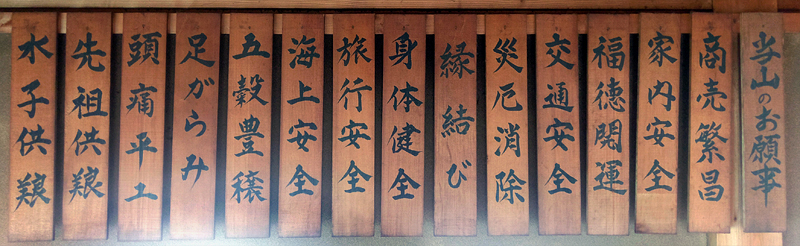 当山のお願事
商売繁昌
家内安全
福徳開運
交通安全
災厄消除
縁結び
身体健全
旅行安全
海上安全
五穀豊穣
足がらみ
頭痛平
先祖供養
水子供養